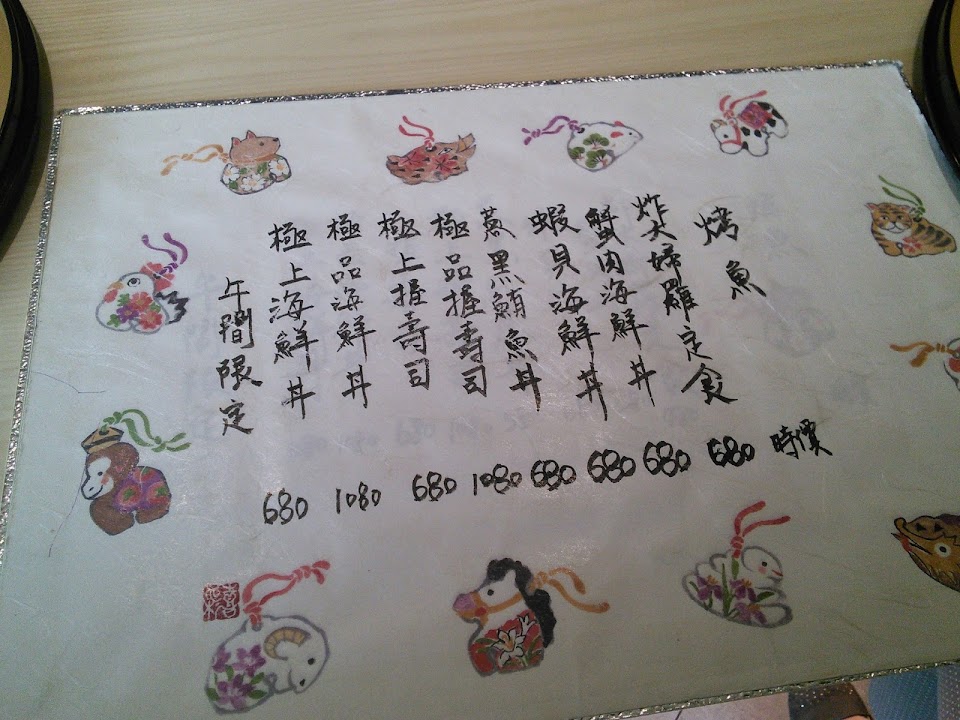 午間限定
極上海鮮丼 680
極品海鮮丼 1080
極上握壽司 680
極品握壽司 1080
蔥黑鮪魚丼 680
蝦貝海鮮丼 680
蟹肉海鮮丼 680
炸天婦羅定食 680
烤魚 時價